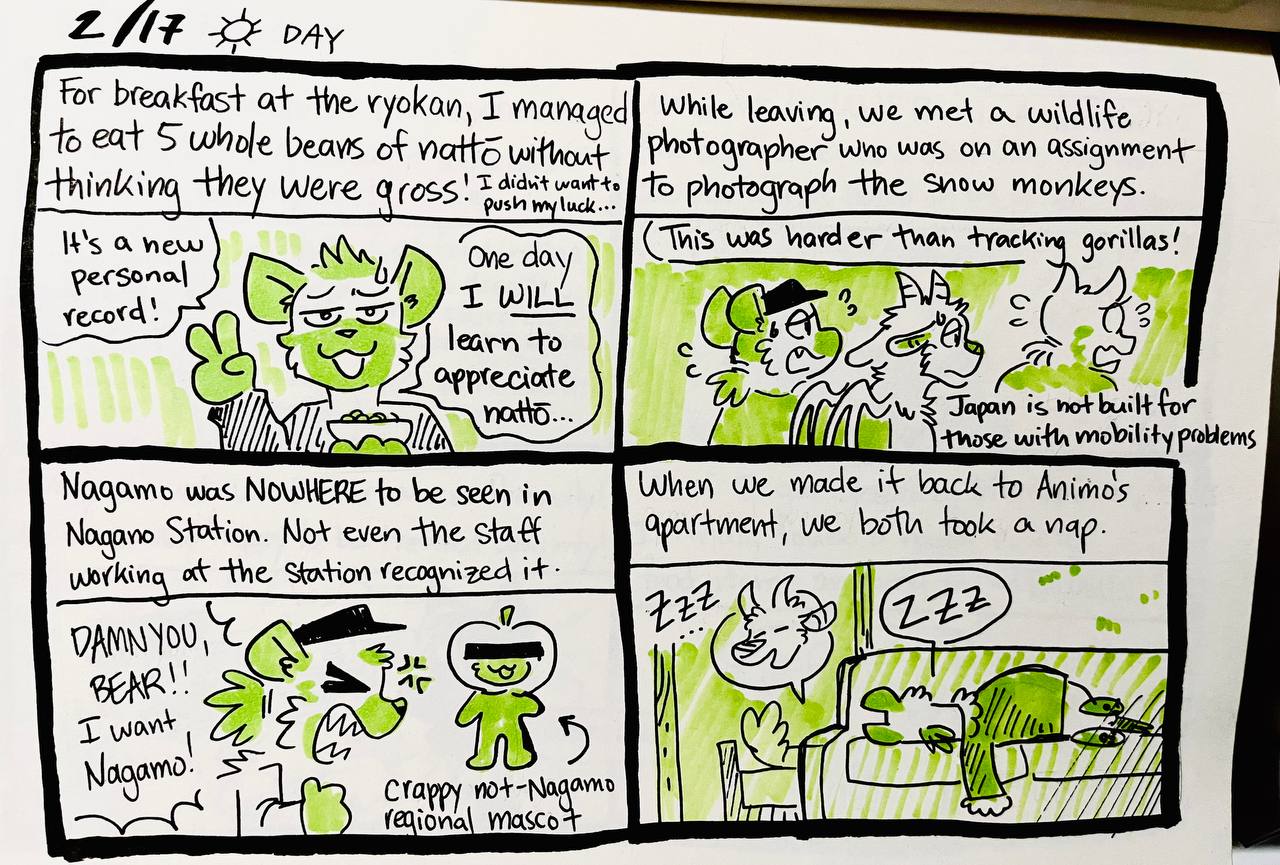 2/17 DAY
For breakfast at the ryokan, I managed
to eat 5 whole beans of nattō without
thinking they were gross! I didn't want to
push my luck...
It's a new
personal
record!
One day
I WILL
learn to
appreciate
nattō...
While leaving, we met a wildlife
photographer who was on an assignment
to photograph the snow monkeys.
This was harder than tracking gorillas!
Japan is not built for
those with mobility problems
Nagamo was NOWHERE to be seen in
Nagano Station. Not even the staff
working at the station recognized it.
DAMN YOU,
BEAR!!
I want
Nagamo!
crappy not-Nagamo
regional mascot
When we made it back to Animo's
apartment, we both took a nap.
ZZZ
...
ZZZ